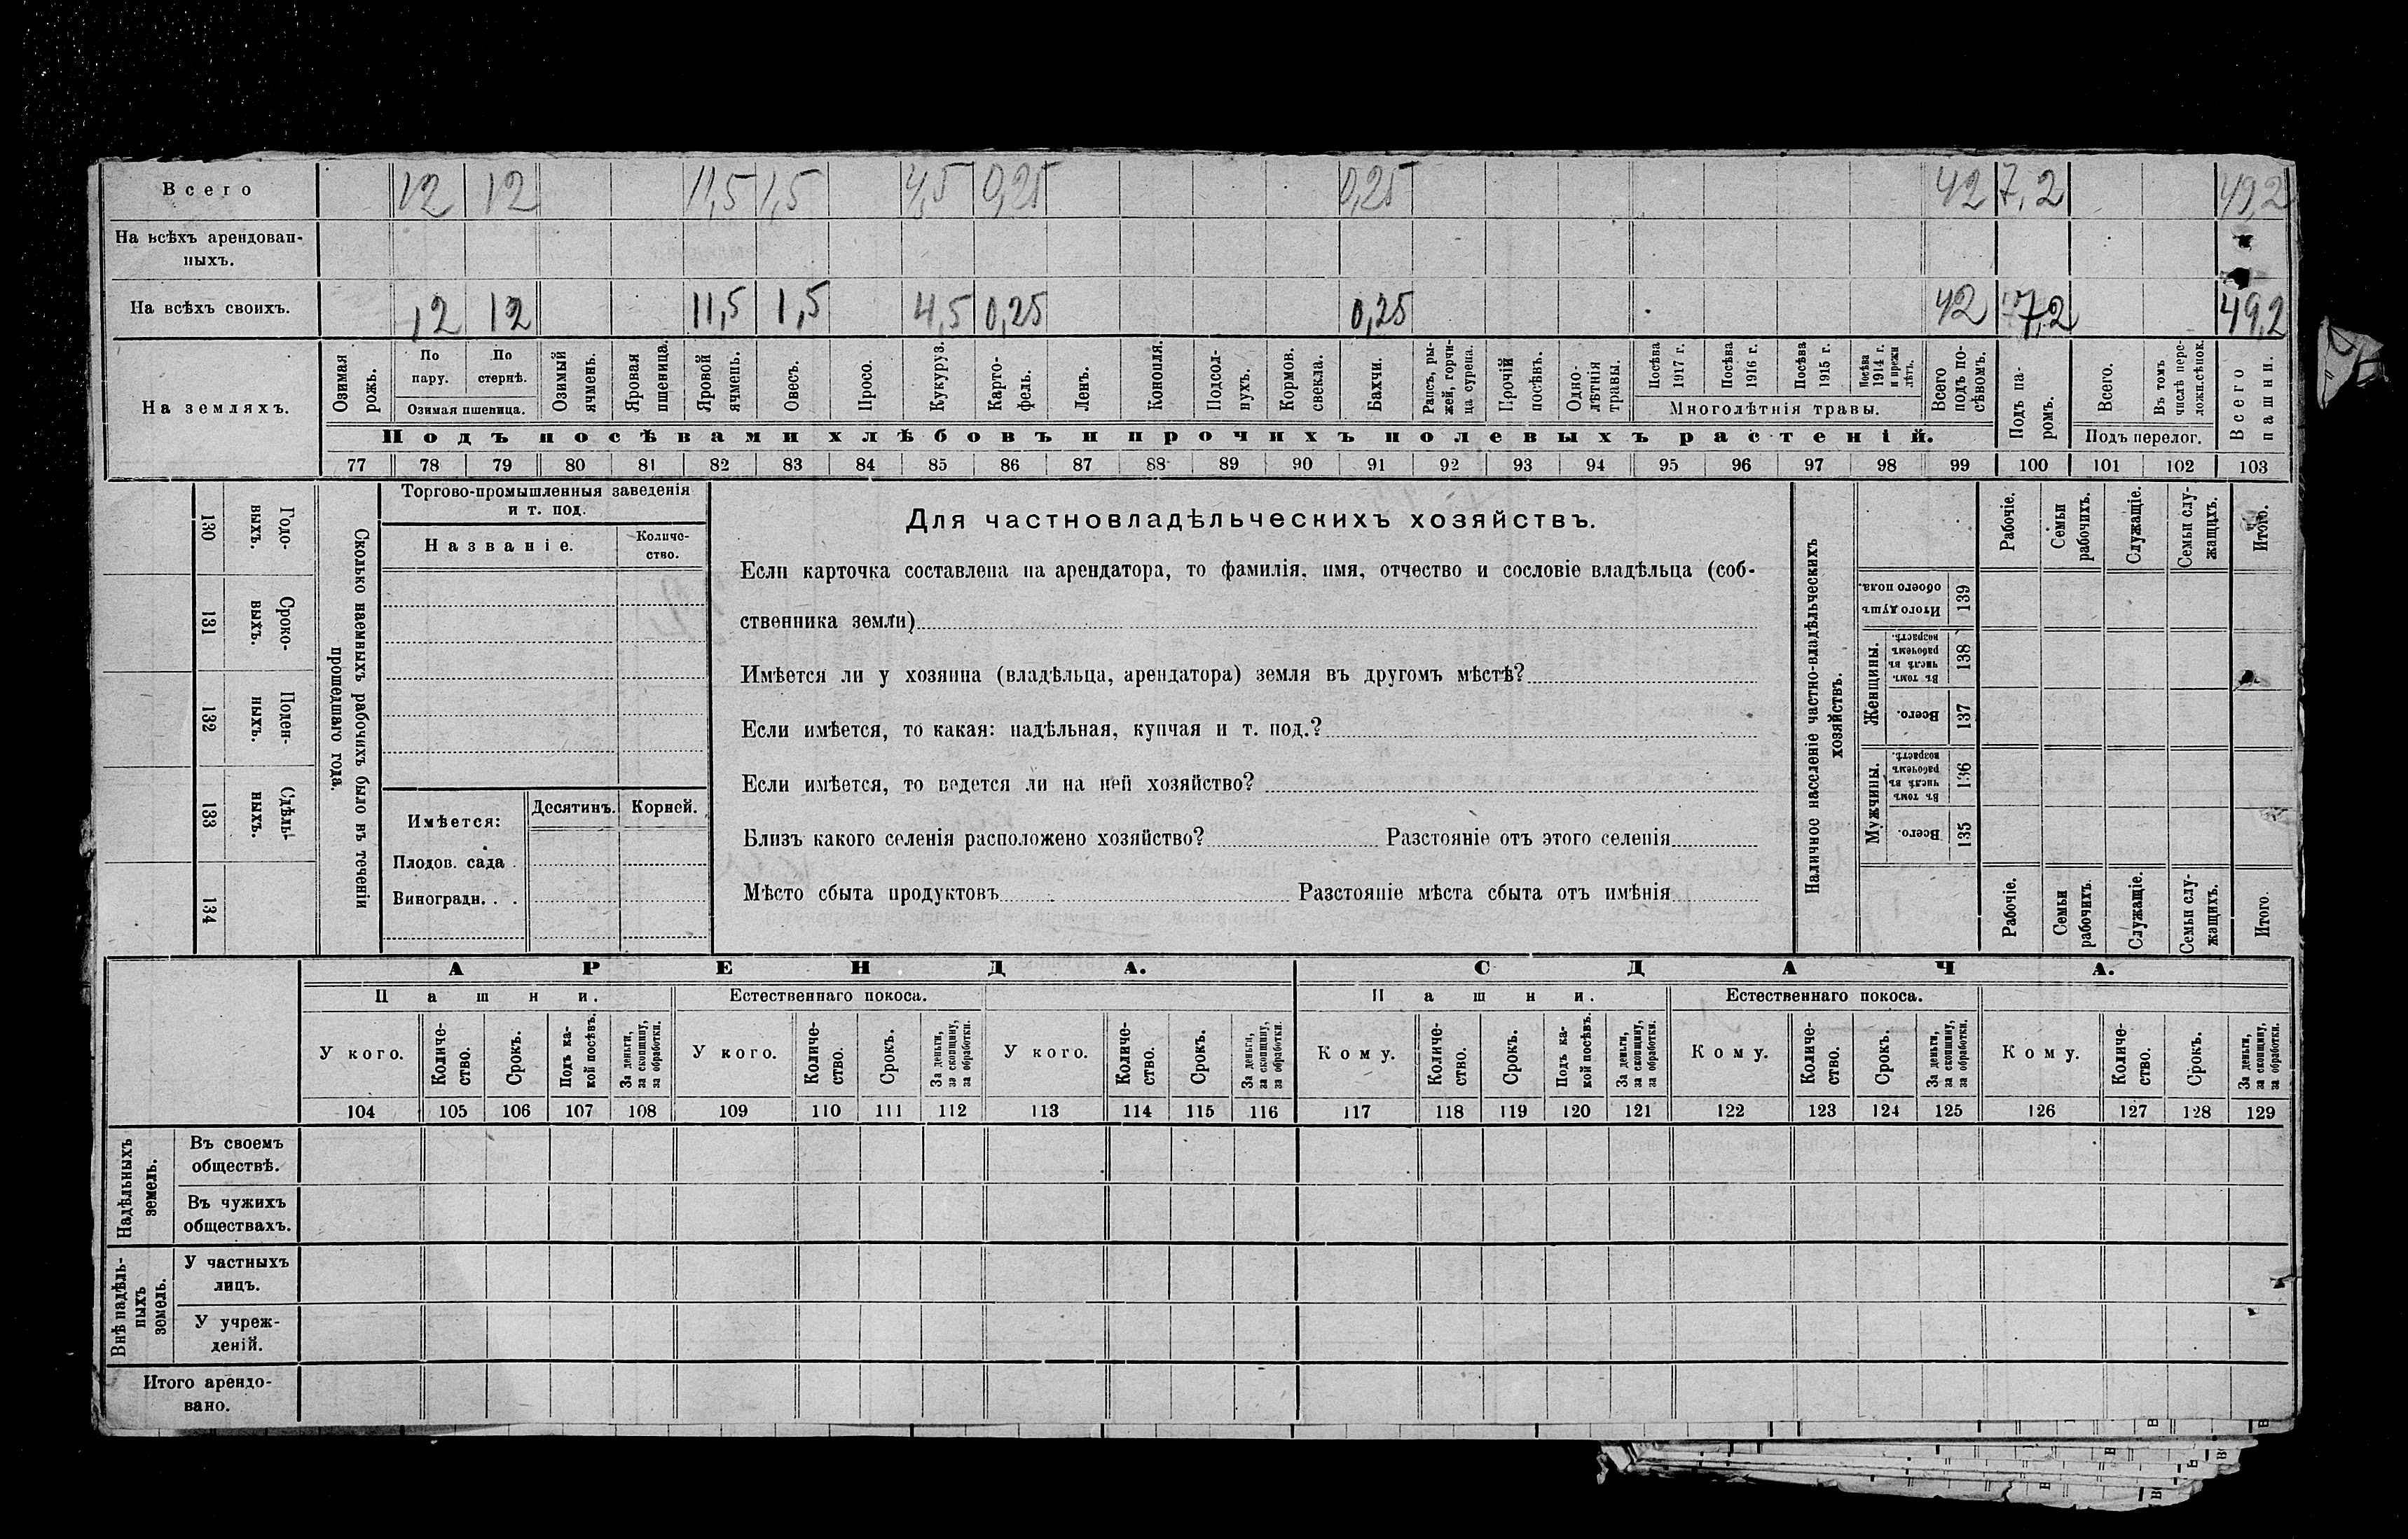 Всего 12 12 11,5 1,5 4,5 0,25 0,25 42 7,2 49,2
На всѣхъ арендован-
ныхъ.
На всѣхъ своихъ. 12 12 11,5 1,5 4,5 0,25 0,25 42 7,2 49,2
На земляхъ.
Озимая рожь.
По пару. По стернѣ.
Озимая пшеница.
Озимый ячмень.
Яровая пшеница.
Яровой ячмень.
Овесъ.
Просо.
Кукуруз.
Карто-
фель.
Ленъ.
Конопля.
Подсол-
нухъ.
Кормов. свекла.
Бахчи.
Рапсъ, ры-
жей, горчи-
ца сурепа.
Прочій посѣвъ.
Одно-
лѣтнія травы.
Посѣва 1917 г.
Посѣва 1916 г.
Посѣва 1915 г.
Посѣва 1914 г. и прежн лѣтъ.
Многолѣтнія травы.
Всего подъ по-
сѣвомъ.
Подъ посѣвами хлѣбовъ и прочихъ полевыхъ растеній.
Подъ па-
ромъ.
Всего.
Въ томъ числѣ пере-
лож.сѣнок.
Подъ перелог.
Всего пашни.
77 78 79 80 81 82 83 84 85 86 87 88 89 90 91 92 93 94 95 96 97 98 99 100 101 102 103
130 Годо-
выхъ.
131 Сроко-
выхъ.
132 Поден-
ныхъ.
133 Сдѣль-
ныхъ.
134
Сколько наемныхъ рабочихъ было въ теченіи
прошедшаго года.
Торгово-промышленныя заведенія
и т. под.
Названіе. Количе-
ство.
Имѣется: Десятинъ. Корней.
Плодов. сада .
Виноградн. . .
Для частновладѣльческихъ хозяйствъ.
Если карточка составлена на арендатора, то фамилія, имя, отчество и сословіе владѣльца (соб-
ственника земли)
Имѣется ли у хозяина (владѣльца, арендатора) земля въ другомъ мѣстѣ?
Если имѣется, то какая: надѣльная, купчая и т. под.?
Если имѣется, то ведется ли на ней хозяйство?
Близъ какого селенія расположено хозяйство? Разстояніе отъ этого селенія
Мѣсто сбыта продуктовъ Разстояніе мѣста сбыта отъ имѣнія
Наличное населеніе частно-владѣльческихъ
хозяйствъ.
Рабочіе. Семьи рабочихъ. Служащіе. Семьи слу-
жащихъ. Итого.
Итого душъ обоего пола. 139
Женщины.
Въ томъ числѣ въ рабочемъ возрастѣ. 138
Всего. 137
Мужчины.
Въ томъ числѣ въ рабочемъ возрастѣ. 136
Всего. 135
Рабочіе. Семьи рабочихъ. Служащіе. Семьи слу-
жащихъ. Итого.
АРЕНДА. СДАЧА.
Пашни. Естественнаго покоса. Пашни. Естественнаго покоса.
У кого. Количе-
ство. Срокъ. Подъ ка-
кой посѣвъ. За деньги, за скопщину, за обработки.
У кого. Количе-
ство. Срокъ. За деньги, за скопщину, за обработки.
У кого. Количе-
ство. Срокъ. За деньги, за скопщину, за обработки.
Кому. Количе-
ство. Срокъ. Подъ ка-
кой посѣвъ. За деньги, за скопщину, за обработки.
Кому. Количе-
ство. Срокъ. За деньги, за скопщину, за обработки.
Кому. Количе-
ство. Срокъ. За деньги, за скопщину, за обработки.
104 105 106 107 108 109 110 111 112 113 114 115 116 117 118 119 120 121 122 123 124 125 126 127 128 129
Надѣльныхъ земель.
Въ своемъ
обществѣ.
Въ чужихъ
обществахъ.
Внѣ надѣль-
ныхъ земель.
У частныхъ
лицъ.
У учреж-
деній.
Итого арендо-
вано.